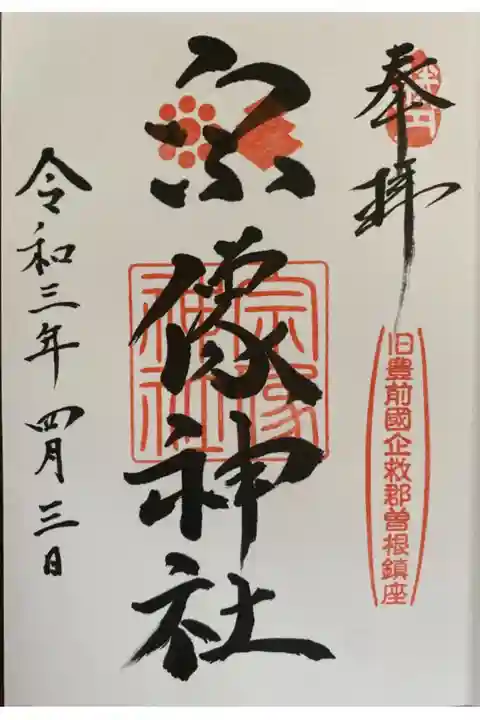 奉拝
旧豊前國企救郡曽根鎮座
宗像神社
宗像
神社
令和三年 四月三日